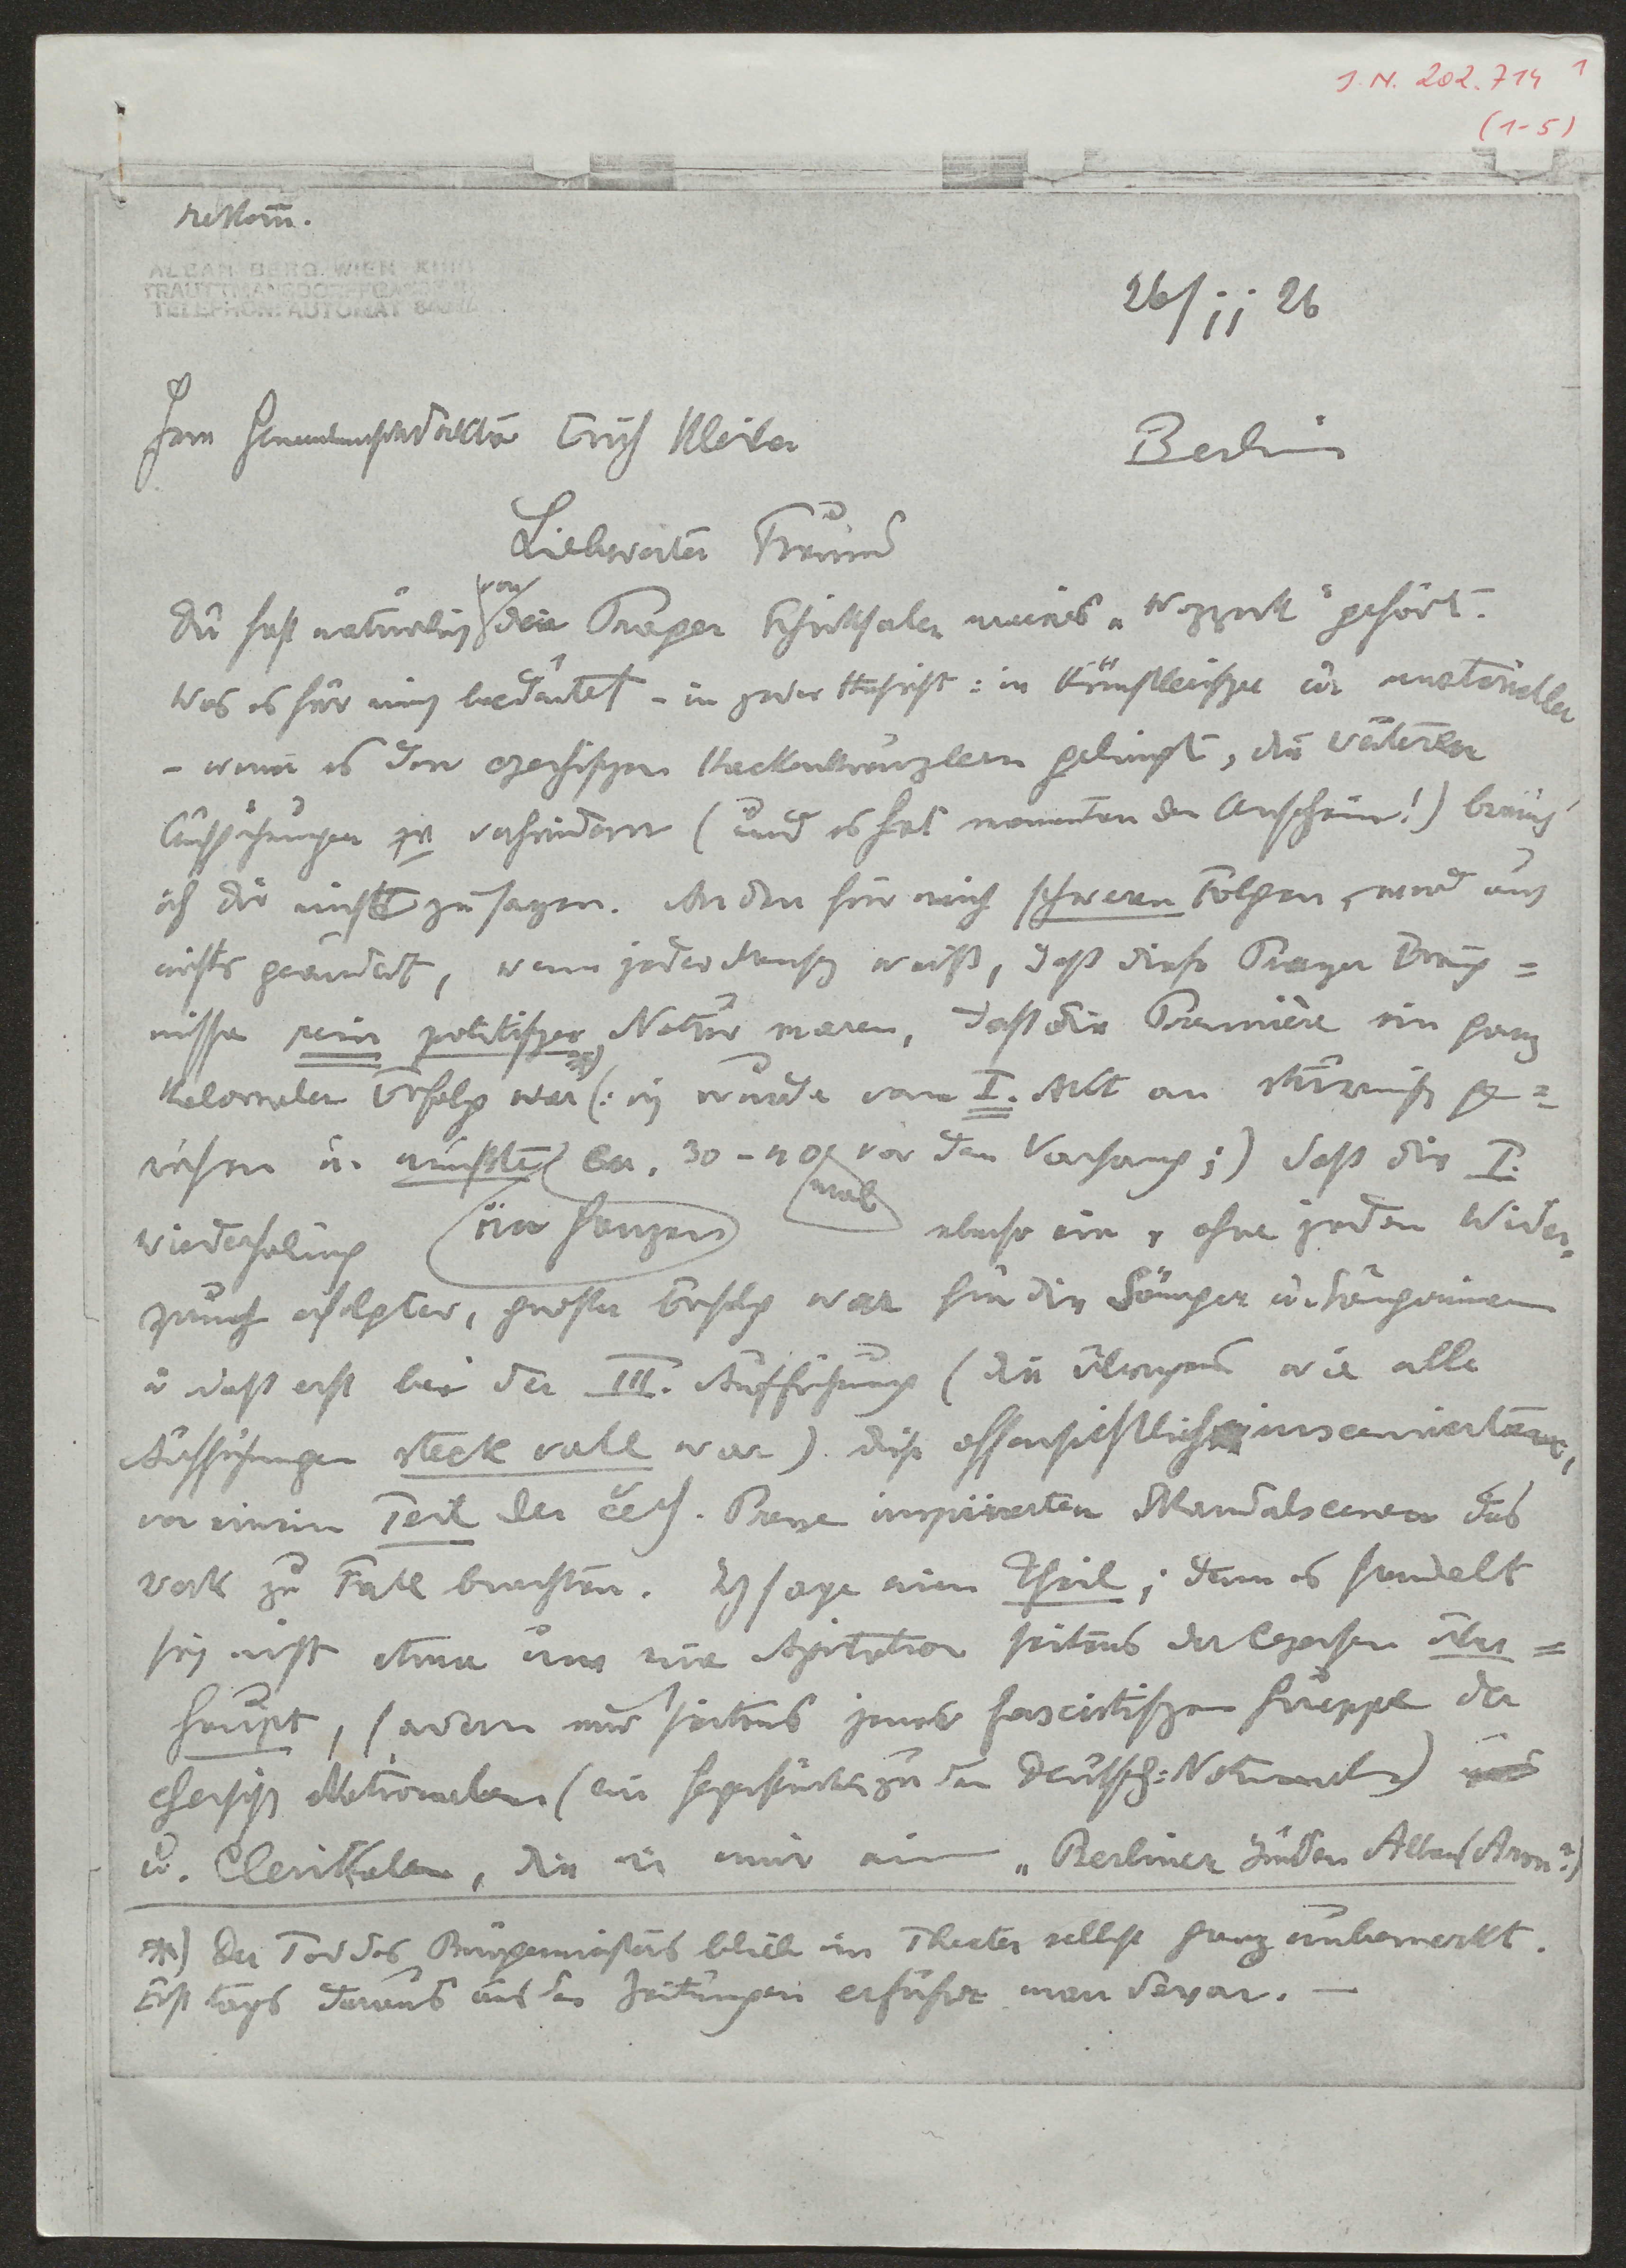 J. N. 202.714 1
(1-5)
rekom.
ALBAN BERG WIEN XIII/
TRAUTTMANSDORFFGASSE
TELEPHON: AUTOMAT 84
26/11 26
Herrn Generalmusikdirektor Erich Kleiber
Berlin
Liebwerter Freund
Du hast natürlich von den Prager Schicksalen meines „Wozzeck" gehört.
Was es für mich bedeutet – in jeder Hinsicht: in künstlerischer u. materieller
– wenn es den czechischen Hackenkreuzlern gelingt, die weiteren
Aufführungen zu verhindern (und es hat momentan den Anschein!) brauch'
ich Dir nicht zu sagen. An den für mich schweren Folgen, wird auch
nichts geändert, wenn jeder Mensch weiß, daß diese Prager Ereig=
nisse rein politischer Natur waren, *) daß die Première ein ganz
kolossaler Erfolg war (: ich wurde vom I. Akt an stürmisch ge=
rufen u. mußte ca. 30–40 mal vor den Vorhang;) daß die I.
Wiederholung im Ganzen ebenso ein, ohne jeden Wider=
spruch erfolgter, großer Erfolg war für die Sänger u. Sängerinnen
u daß erst bei der III. Aufführung (die übrigens wie alle
Aufführungen steck voll war) diese offensichtlich inscenierten,
von einem Teil der čech. Presse inspirierten Skandalscenen das
Werk zu Fall brachten. Ich sage einem Theil; denn es handelt
sich nicht etwa um eine Agitation seitens der Czechen über=
haupt, sondern nur seitens jener fascistischen Gruppe der
chechisch Nationalen (ein Gegenstück zu den Deutsch=Nationalen)
u. Clerikalen, die in mir einen „Berliner Juden Alban (Aron?)
*) Der Tod des Bürgermeisters blieb im Theater selbst ganz unbemerkt.
Erst tags darauf aus den Zeitungen erfuhr man davon. —